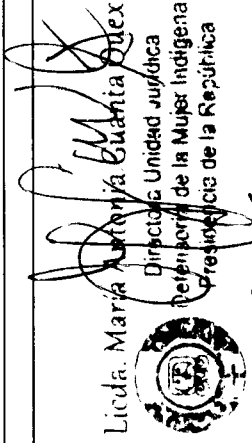 Licda. María Antonia Guantá Quex
Directora Unidad Jurídica
Defensoría de la Mujer Indígena
Presidencia de la República